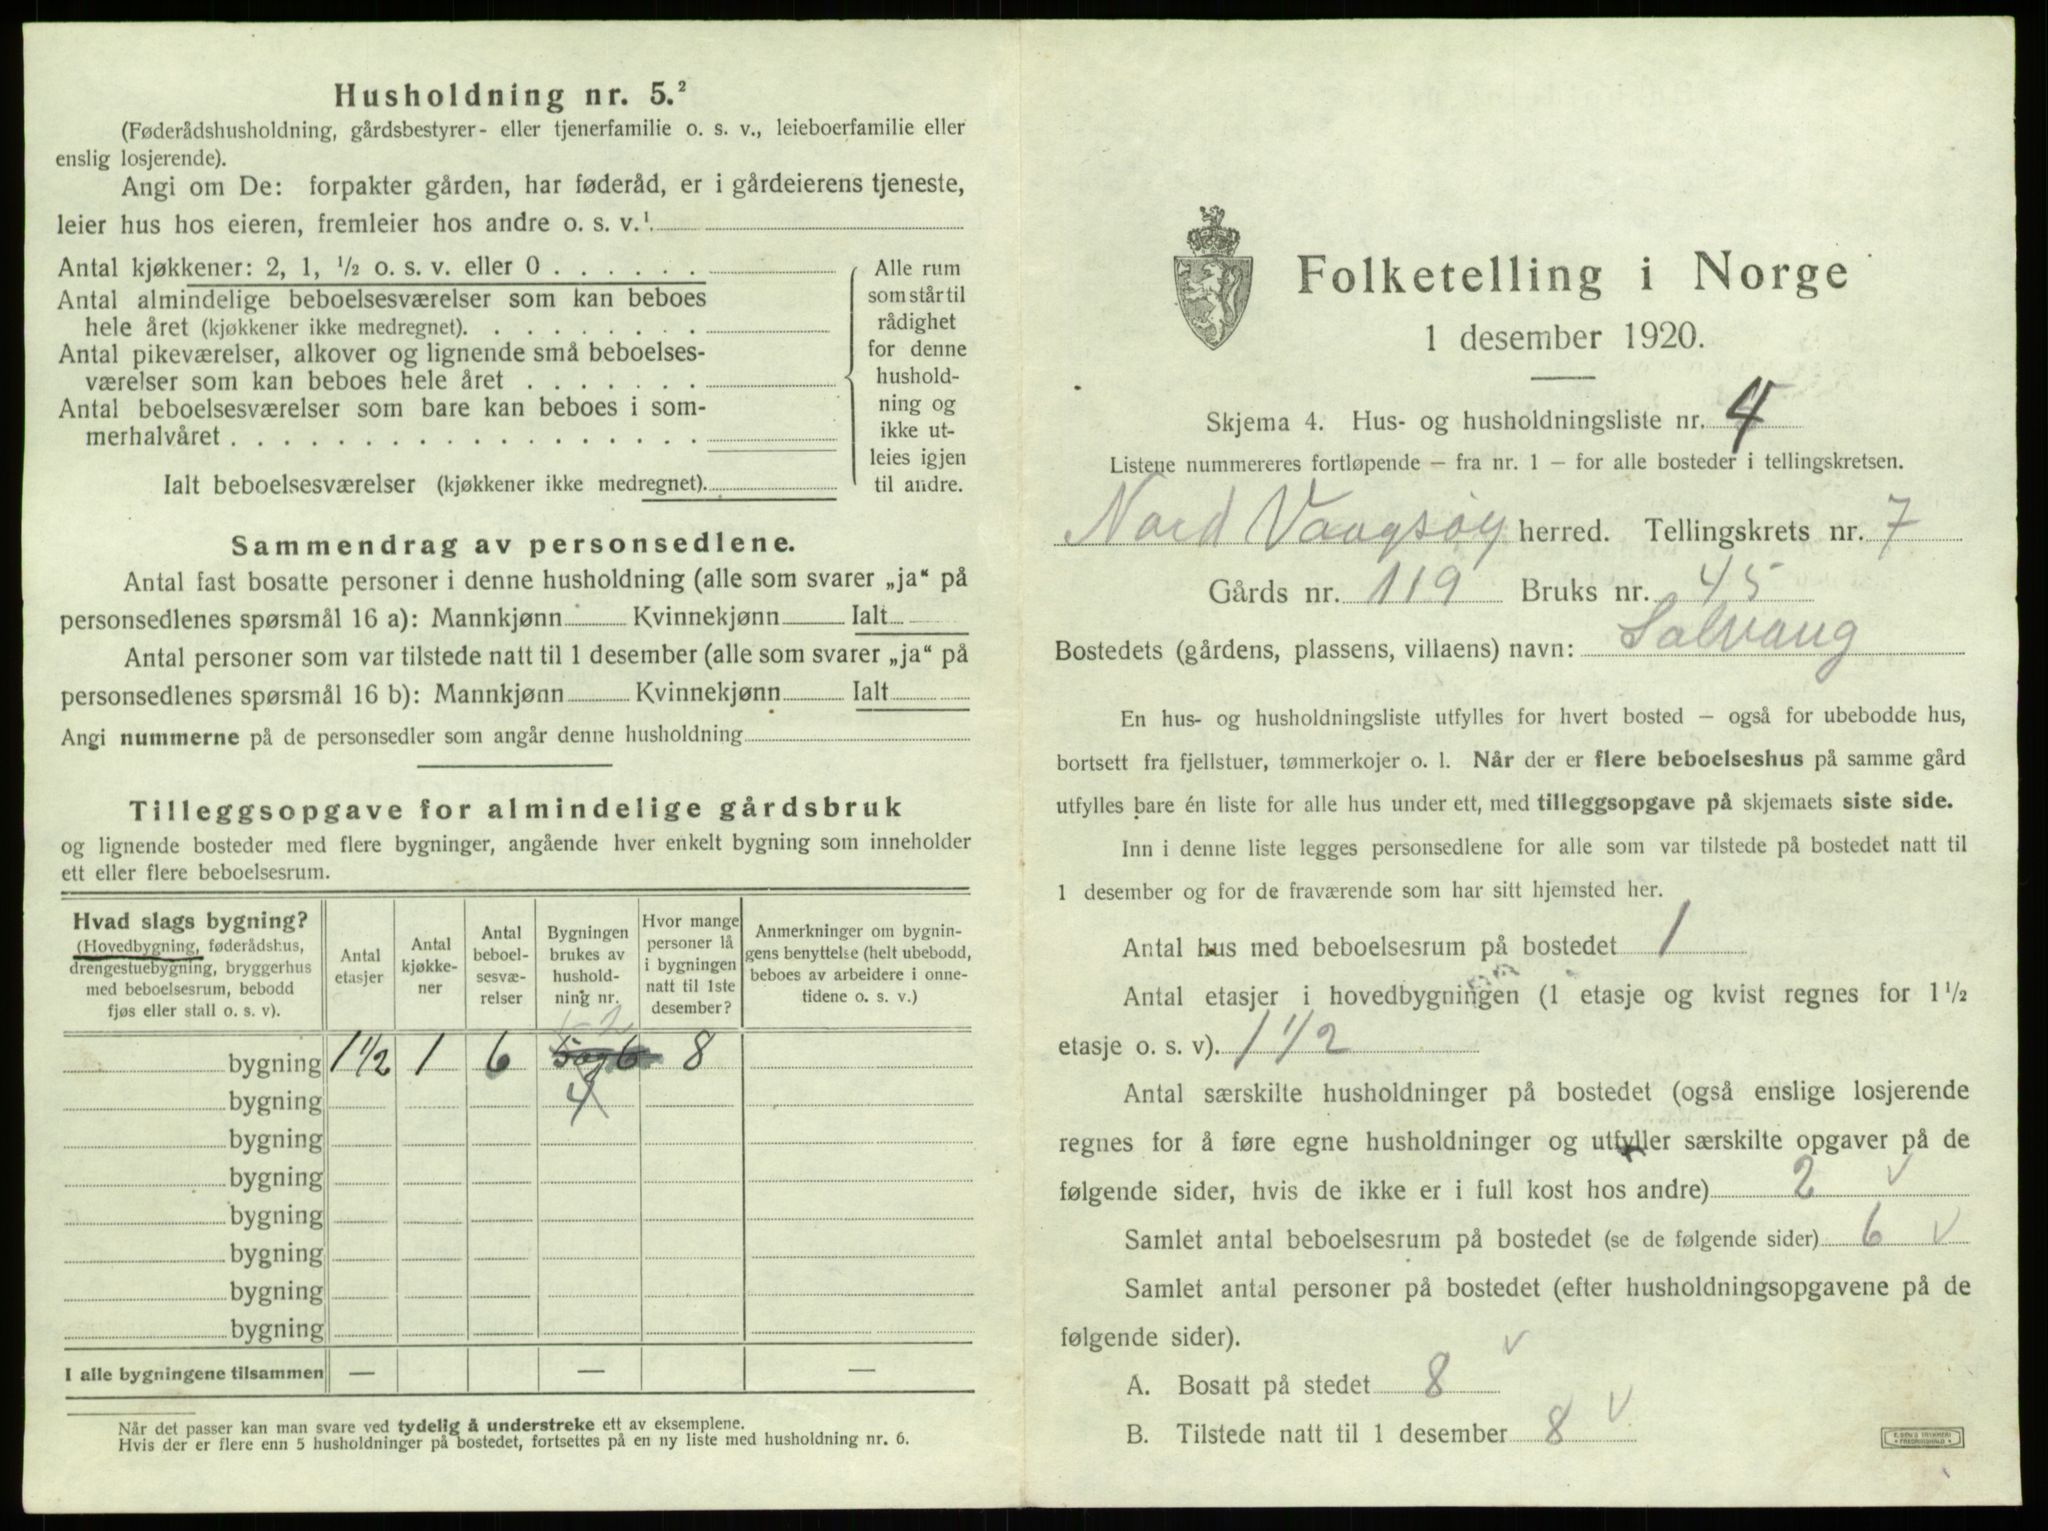 Husholdning nr. 5.²
(Føderådshusholdning, gårdsbestyrer- eller tjenerfamilie o. s. v., leieboerfamilie eller
enslig losjerende).
Angi om De: forpakter gården, har føderåd, er i gårdeierens tjeneste,
leier hus hos eieren, fremleier hos andre o. s. v.¹
Antal kjøkkener: 2, 1, ½ o. s. v. eller 0
Antal almindelige beboelsesværelser som kan beboes
hele året (kjøkkener ikke medregnet).
Antal pikeværelser, alkover og lignende små beboelses-
værelser som kan beboes hele året
Antal beboelsesværelser som bare kan beboes i som-
merhalvåret
Ialt beboelsesværelser (kjøkkener ikke medregnet)
Alle rum
som står til
rådighet
for denne
hushold-
ning og
ikke ut-
leies igjen
til andre.
Sammendrag av personsedlene.
Antal fast bosatte personer i denne husholdning (alle som svarer „ja“ på
personsedlenes spørsmål 16 a): Mannkjønn Kvinnekjønn Ialt
Antal personer som var tilstede natt til 1 desember (alle som svarer „ja“ på
personsedlenes spørsmål 16 b): Mannkjønn Kvinnekjønn Ialt
Angi nummerne på de personsedler som angår denne husholdning
Tilleggsopgave for almindelige gårdsbruk
og lignende bosteder med flere bygninger, angående hver enkelt bygning som inneholder
ett eller flere beboelsesrum.
Hvad slags bygning?
(Hovedbygning, føderådshus,
drengestuebygning, bryggerhus
med beboelsesrum, bebodd
fjøs eller stall o. s. v).
Antal
etasjer
Antal
kjøkke-
ner
Antal
beboel-
sesvæ-
relser
Bygningen
brukes av
hushold-
ning nr.
Hvor mange
personer lå
i bygningen
natt til 1ste
desember?
Anmerkninger om bygnin-
gens benyttelse (helt ubebodd,
beboes av arbeidere i onne-
tidene o. s. v.)
bygning 1 1/2 1 6 5 og 6 8
4
bygning
bygning
bygning
bygning
bygning
bygning
bygning
I alle bygningene tilsammen — — —
Når det passer kan man svare ved tydelig å understreke ett av eksemplene.
Hvis der er flere enn 5 husholdninger på bostedet, fortsettes på en ny liste med husholdning nr. 6.
Folketelling i Norge
1 desember 1920.
Skjema 4. Hus- og husholdningsliste nr. 4
Listene nummereres fortløpende – fra nr. 1 – for alle bosteder i tellingskretsen.
Nord Vaagsøy herred. Tellingskrets nr. 7
Gårds nr. 119 Bruks nr. 45
Bostedets (gårdens, plassens, villaens) navn: Solvang
En hus- og husholdningsliste utfylles for hvert bosted – også for ubebodde hus,
bortsett fra fjellstuer, tømmerkojer o. l. Når der er flere beboelseshus på samme gård
utfylles bare én liste for alle hus under ett, med tilleggsopgave på skjemaets siste side.
Inn i denne liste legges personsedlene for alle som var tilstede på bostedet natt til
1 desember og for de fraværende som har sitt hjemsted her.
Antal hus med beboelsesrum på bostedet 1
Antal etasjer i hovedbygningen (1 etasje og kvist regnes for 1½
etasje o. s. v). 1 1/2
Antal særskilte husholdninger på bostedet (også enslige losjerende
regnes for å føre egne husholdninger og utfyller særskilte opgaver på de
følgende sider, hvis de ikke er i full kost hos andre) 2 v
Samlet antal beboelsesrum på bostedet (se de følgende sider) 6 v
Samlet antal personer på bostedet (efter husholdningsopgavene på de
følgende sider).
A. Bosatt på stedet 8 v
B. Tilstede natt til 1 desember 8 v